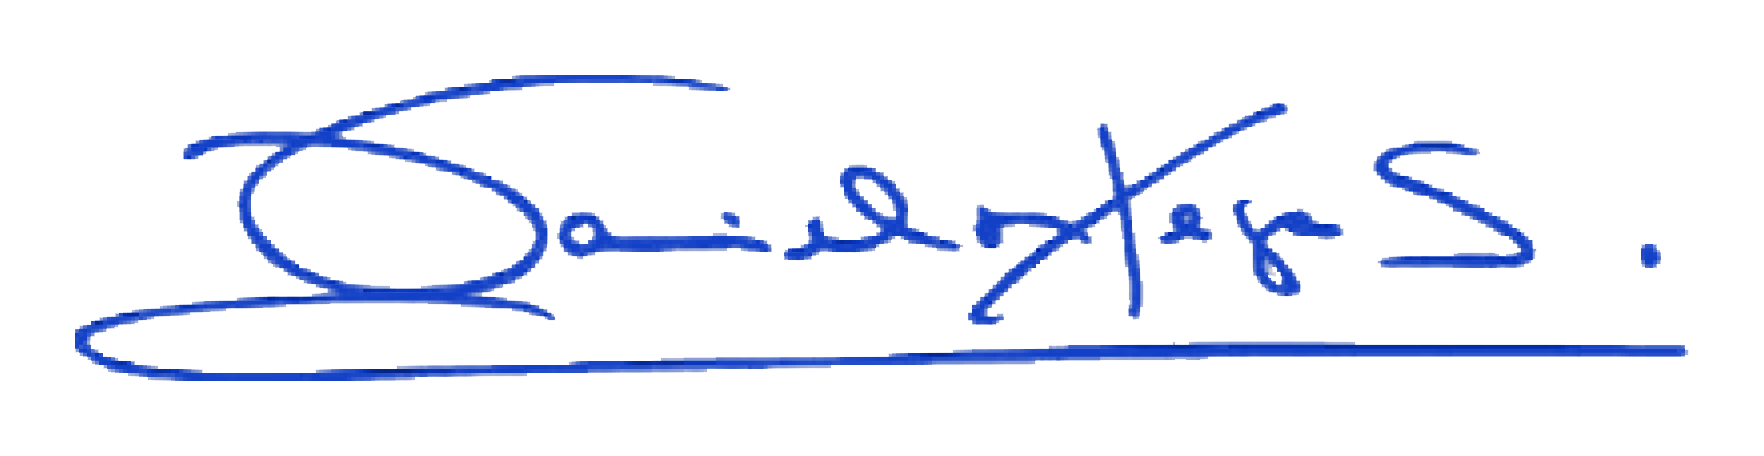 Daniel Ortega S.